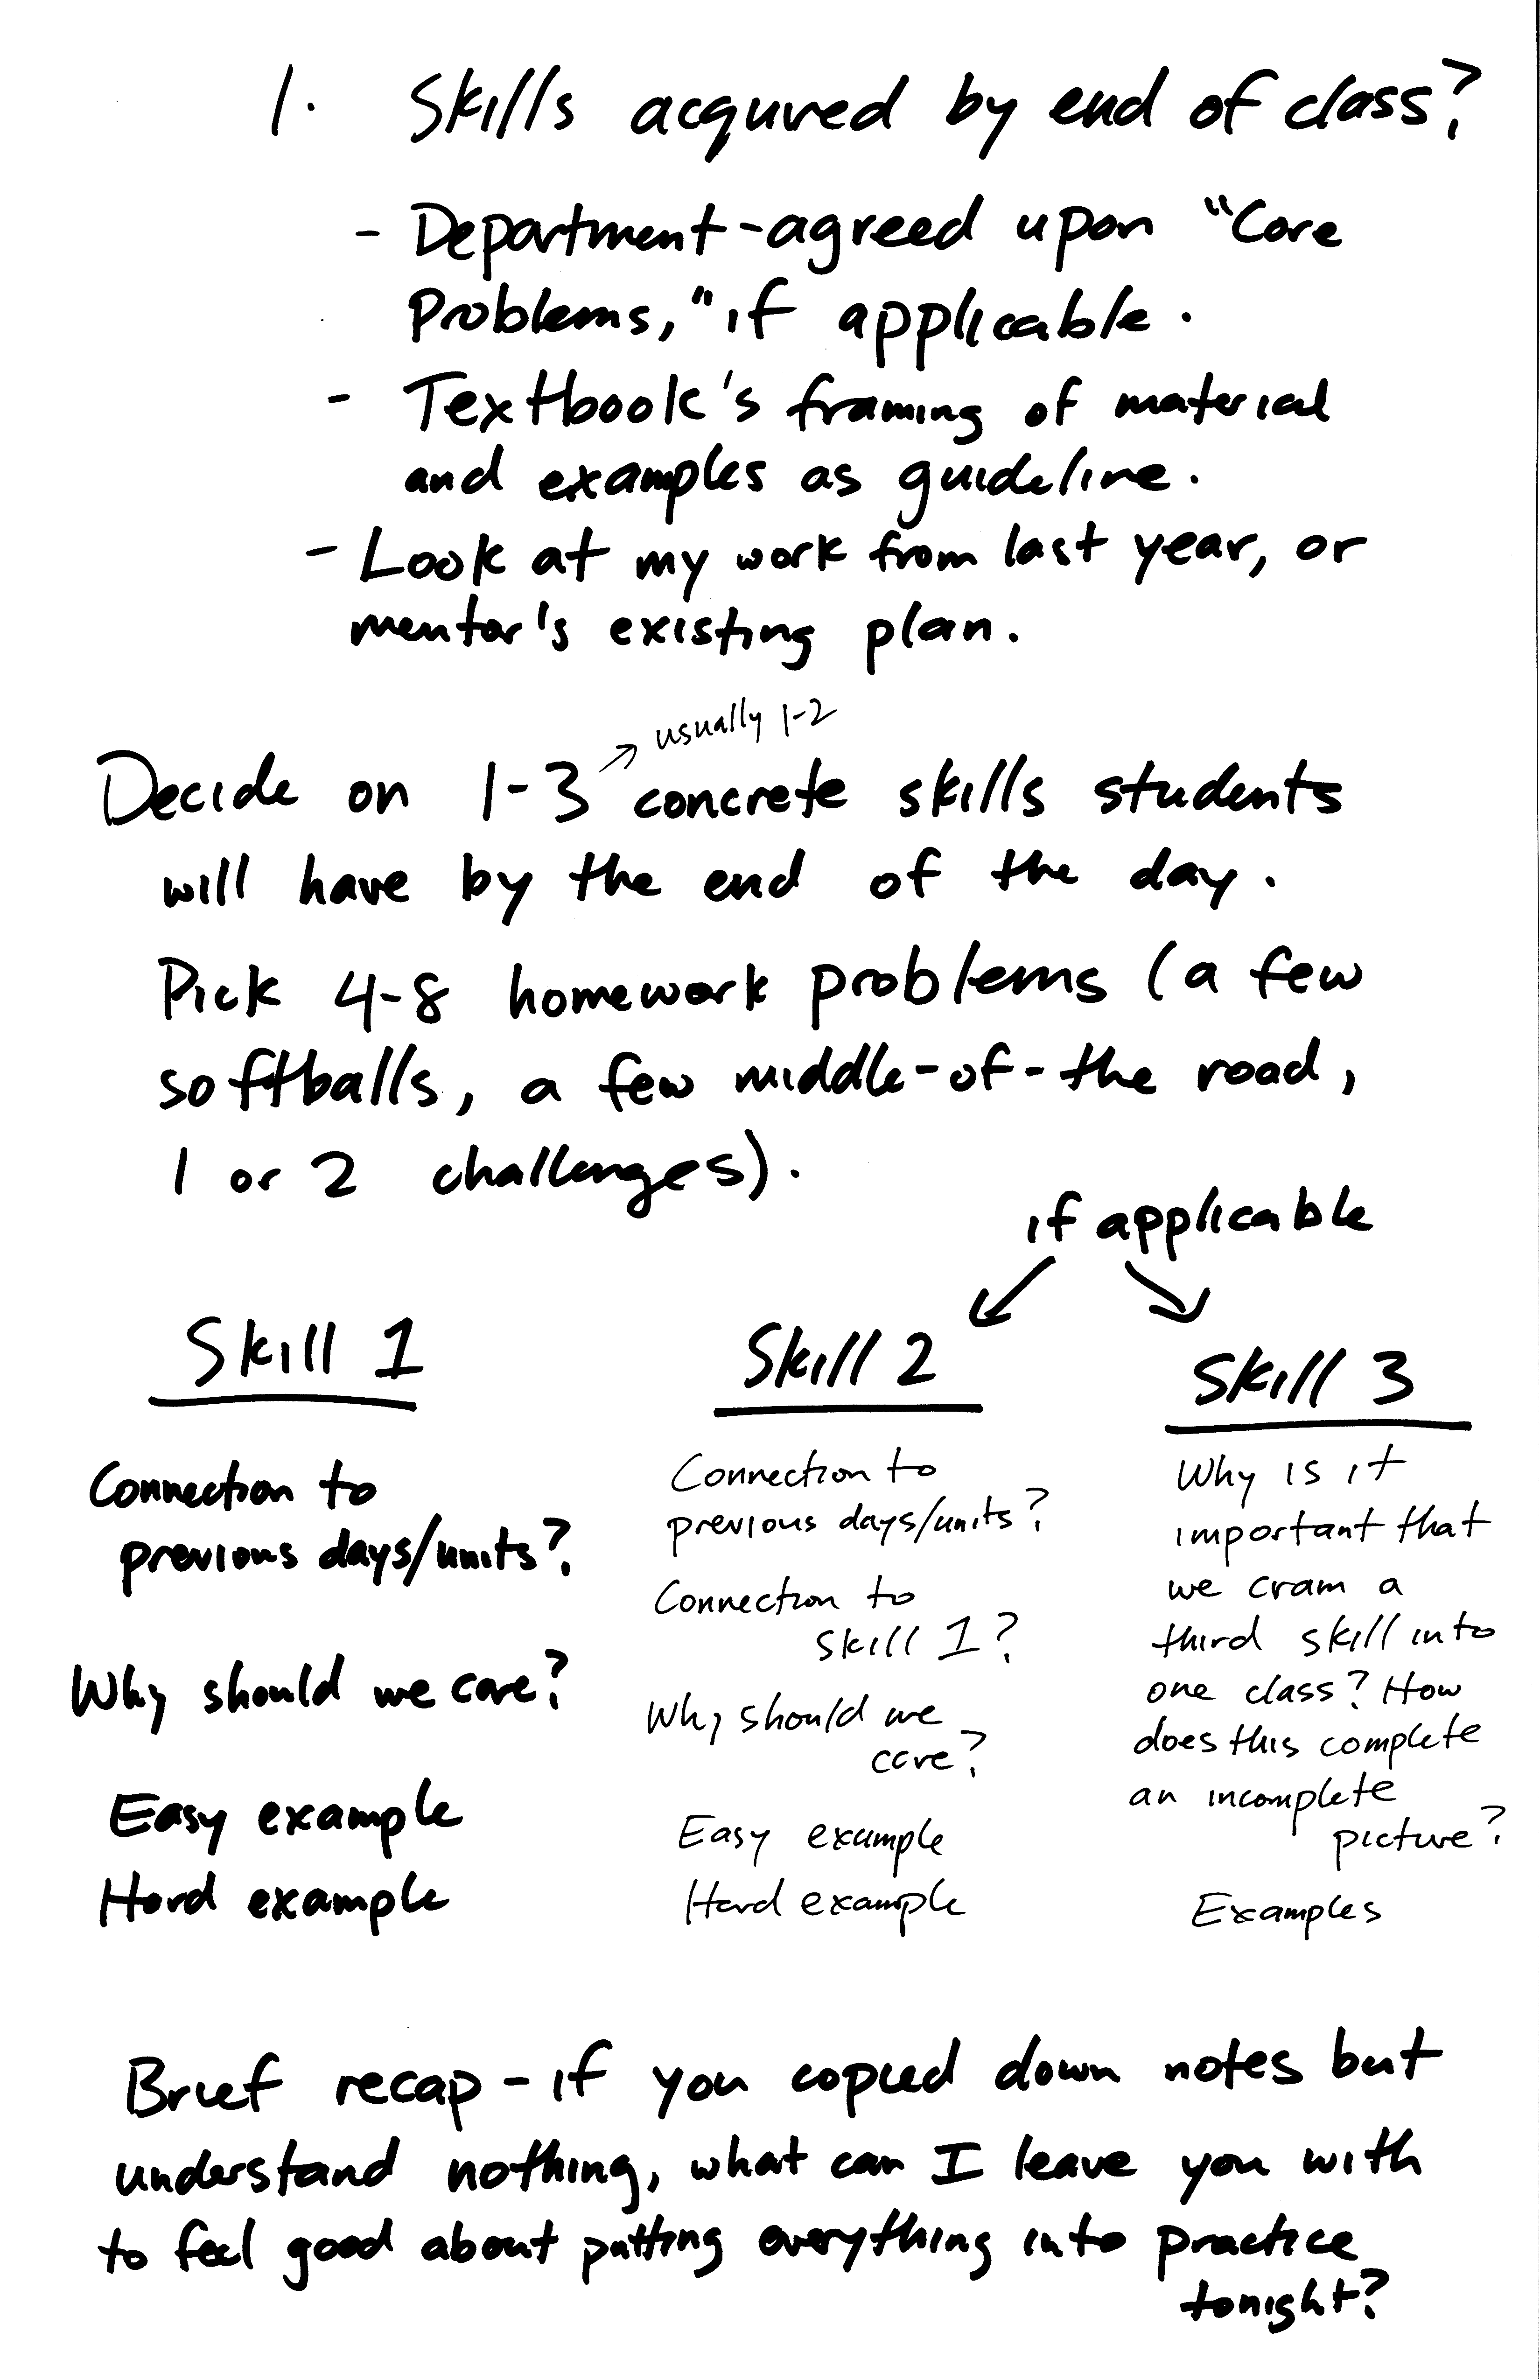 1. Skills acquired by end of class?
- Department-agreed upon "Core
Problems," if applicable.
- Textbook's framing of material
and examples as guideline.
- Look at my work from last year, or
mentor's existing plan.
usually 1-2
Decide on 1-3 concrete skills students
will have by the end of the day.
Pick 4-8 homework problems (a few
softballs, a few middle-of-the road,
1 or 2 challenges).
if applicable
Skill 1
Connection to
previous days/units?
Why should we care?
Easy example
Hard example
Skill 2
Connection to
previous days/units?
Connection to
skill 1?
Why should we
care?
Easy example
Hard example
Skill 3
Why is it
important that
we cram a
third skill into
one class? How
does this complete
an incomplete
picture?
Examples
Brief recap - if you copied down notes but
understand nothing, what can I leave you with
to feel good about putting everything into practice
tonight?